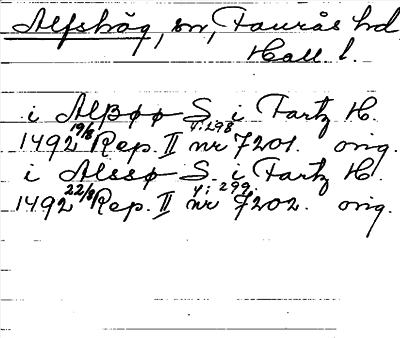 Alfshög, sn, Faurås hd
Hall l.
i Alβøø S. i Fartz H.
1492 19/8 Rep. II nr 7201. orig.
y: 298
i Alssø S. i Fartz H.
1492 22/8 Rep. II nr 7202. orig.
y: 299.